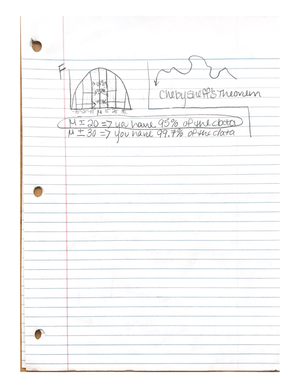 F
Chebysheff's Theorem
M ± 2σ => you have 95% of the data
M ± 3σ => you have 99.7% of the data